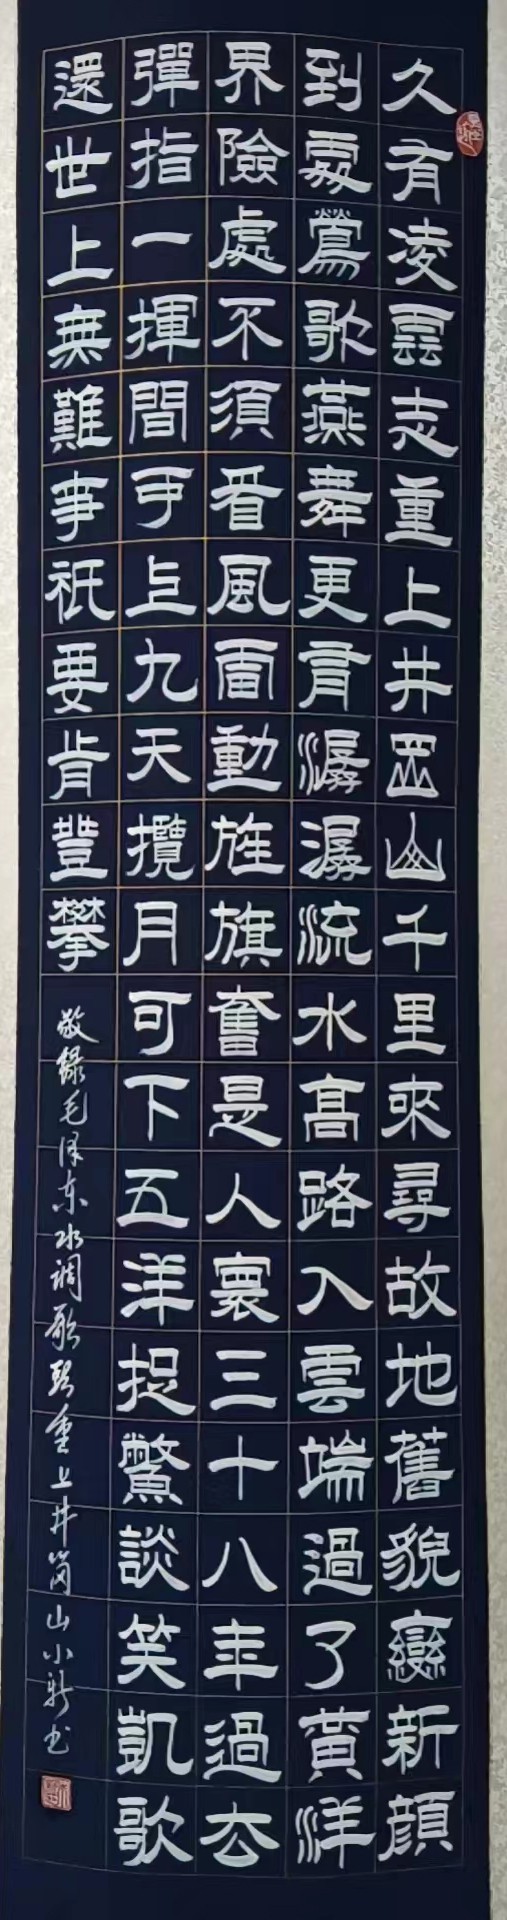 久有凌雲志重上井岡山千里來尋故地舊貌變新顔
到處鶯歌燕舞更有潺潺流水高路入雲端過了黃洋
界險處不須看風雷動旌旗奮是人寰三十八年過去
彈指一揮間可上九天攬月可下五洋捉鱉談笑凱歌
還世上無難事祇要肯登攀
敬錄毛泽东水调歌头重上井岗山小新书